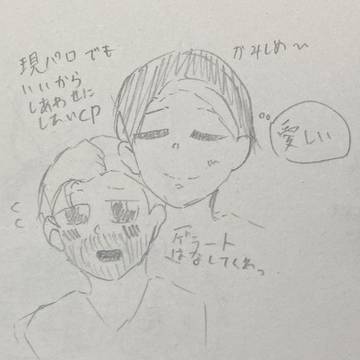 現パロでも
いいから
しあわせに
したいCP
かみしめ〜
愛しい
ゲラート
はなしてくれっ